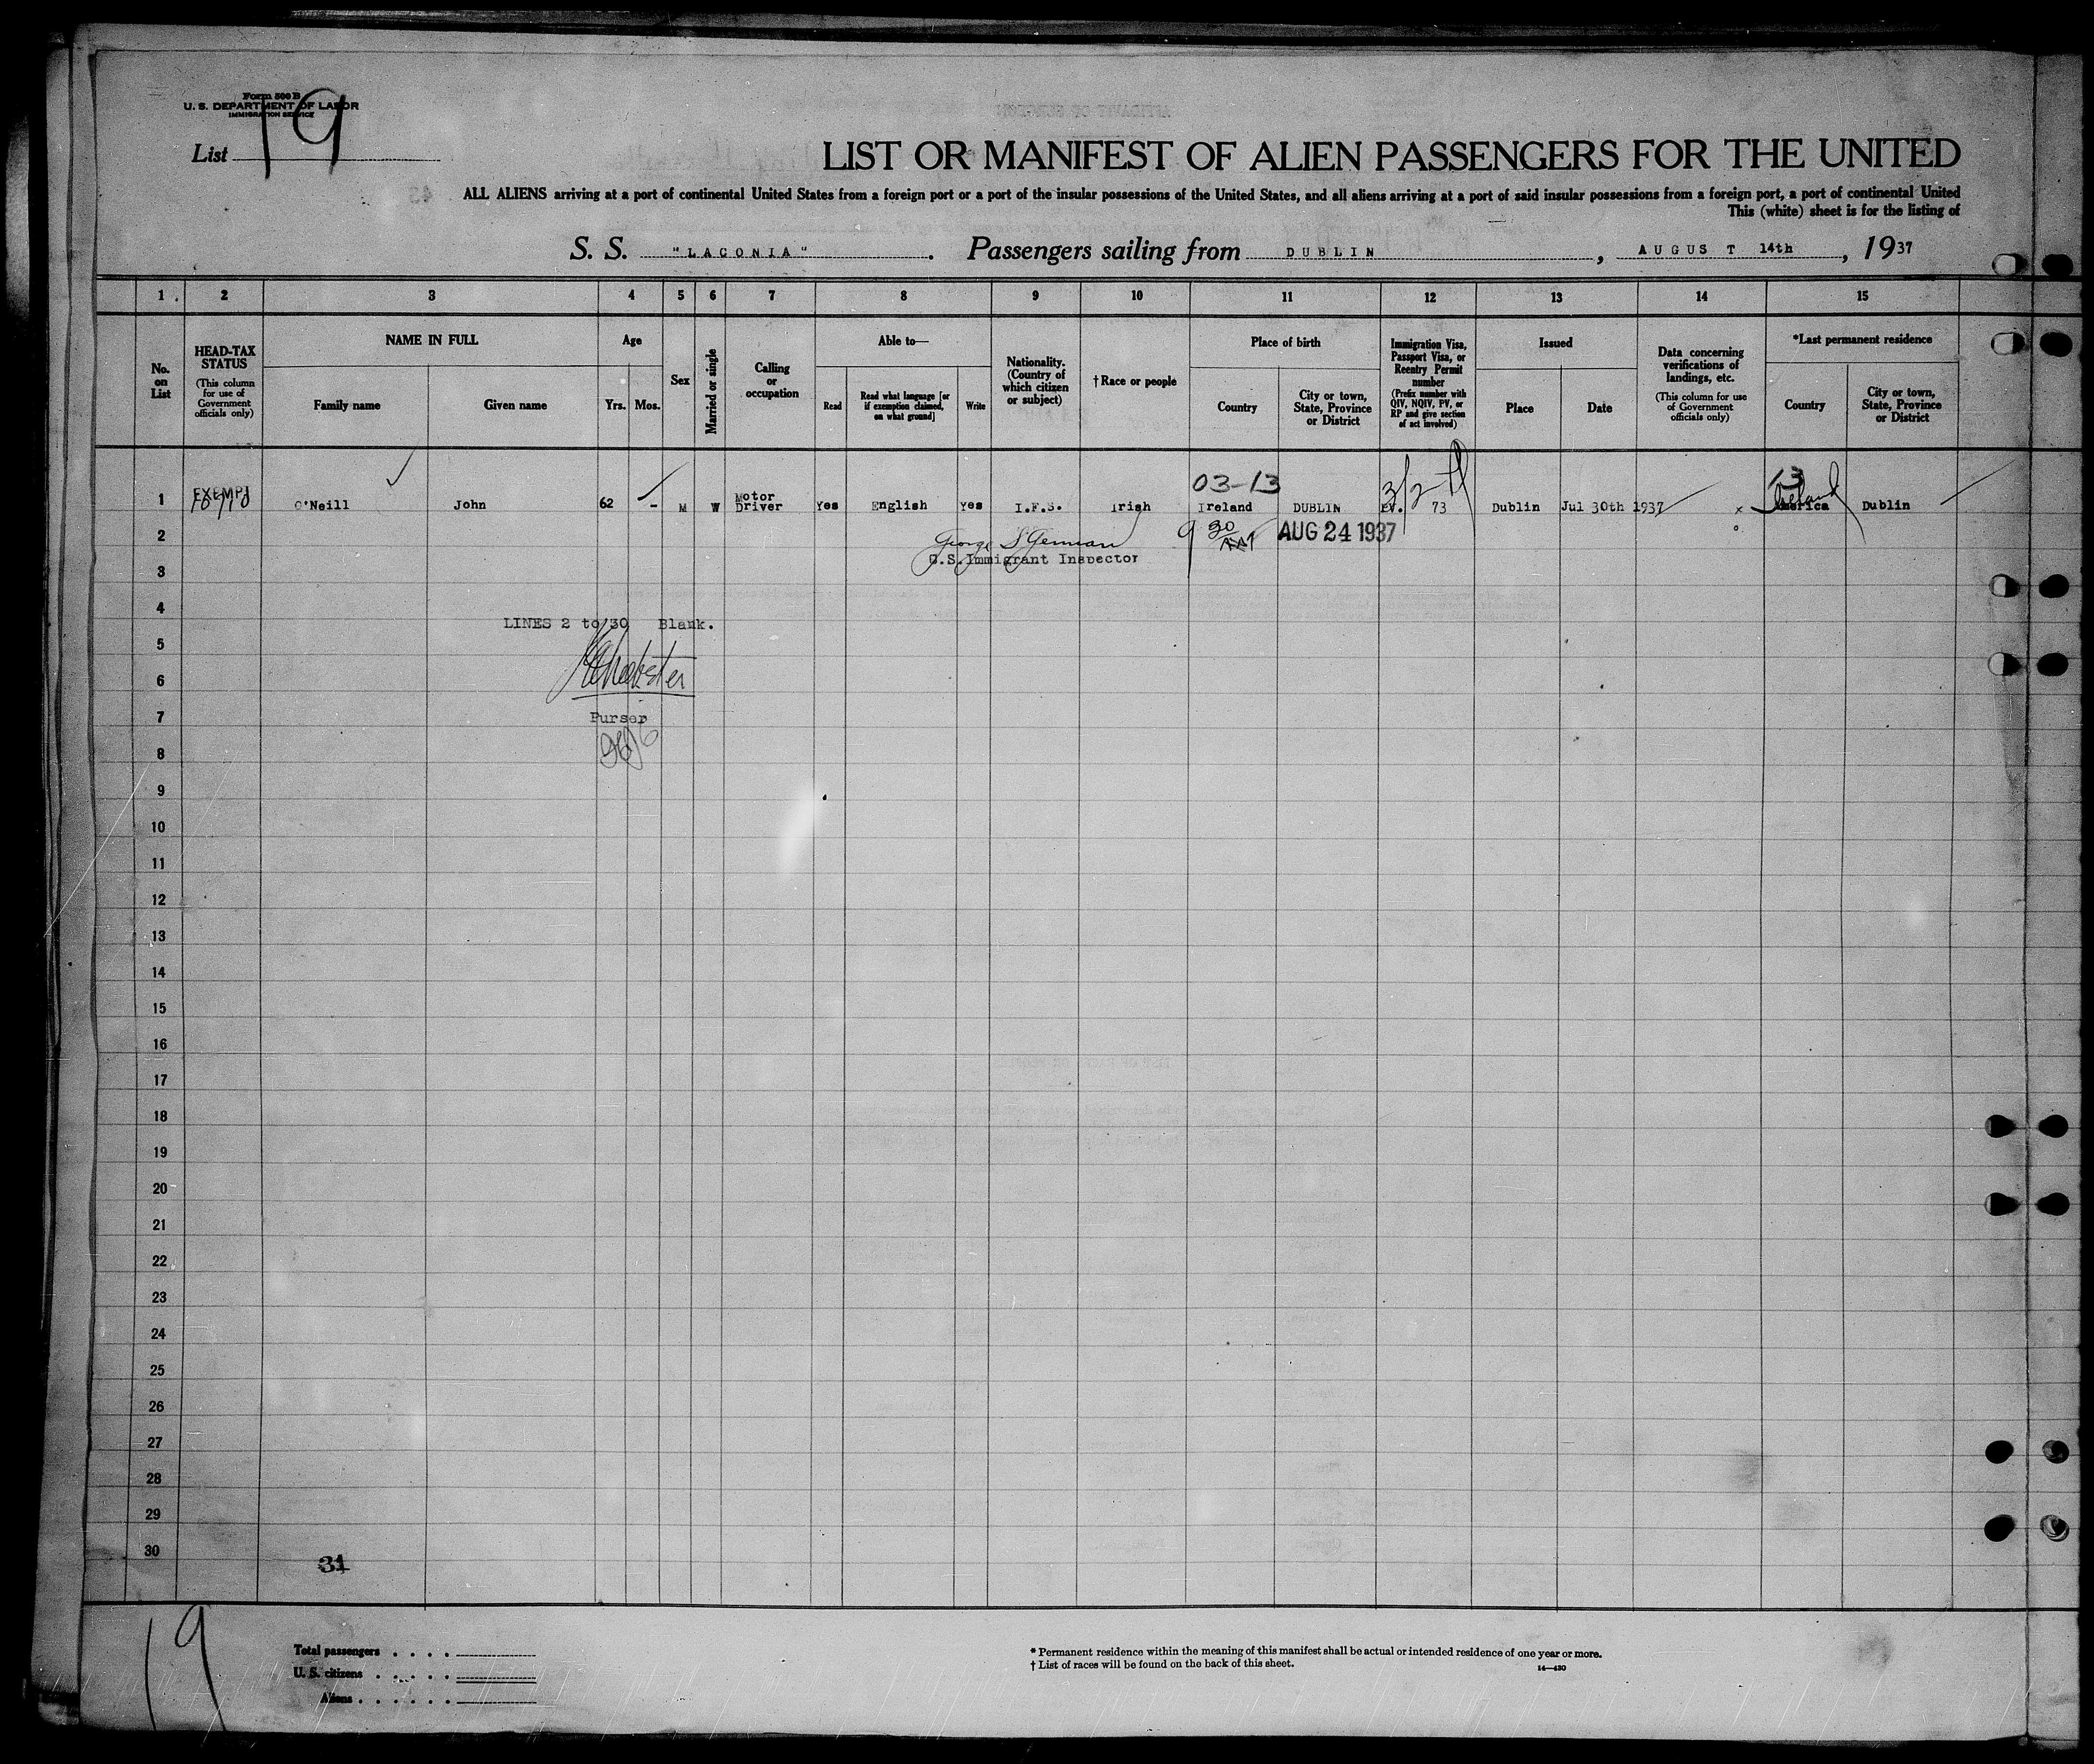 Form 500 B
U. S. DEPARTMENT OF LABOR
IMMIGRATION SERVICE
List 19
LIST OR MANIFEST OF ALIEN PASSENGERS FOR THE UNITED
ALL ALIENS arriving at a port of continental United States from a foreign port or a port of the insular possessions of the United States, and all aliens arriving at a port of said insular possessions from a foreign port, a port of continental United
This (white) sheet is for the listing of
S. S. "LACONIA". Passengers sailing from DUBLIN, AUGUST 14th, 1937
1 2 3 4 5 6 7 8 9 10 11 12 13 14 15
No. on List
HEAD-TAX STATUS (This column for use of Government officials only)
NAME IN FULL
Family name
Given name
Age
Yrs.
Mos.
Sex
Married or single
Calling or occupation
Able to—
Read
Read what language [or if exemption claimed, on what ground]
Write
Nationality. (Country of which citizen or subject)
†Race or people
Place of birth
Country
City or town, State, Province or District
Immigration Visa, Passport Visa, or Reentry Permit number (Prefix number with QIV, NQIV, PV, or RP and give section of act involved)
Issued
Place
Date
Data concerning verifications of landings, etc. (This column for use of Government officials only)
*Last permanent residence
Country
City or town, State, Province or District
03-13
13
1 EXEMPT O'Neill John 62 - M W Motor Driver Yes English Yes I.F.S. Irish Ireland DUBLIN PV. 73 Dublin Jul 30th 1937 x America Ireland Dublin
2 9 30 AUG 24 1937
U.S. Immigrant Inspector
3
4
LINES 2 to 30 Blank.
5
6
7
Purser
8
9
10
11
12
13
14
15
16
17
18
19
20
21
22
23
24
25
26
27
28
29
30
31
19
Total passengers . . . .
U. S. citizens . . . . .
Aliens . . . . . .
* Permanent residence within the meaning of this manifest shall be actual or intended residence of one year or more.
† List of races will be found on the back of this sheet.
14—430